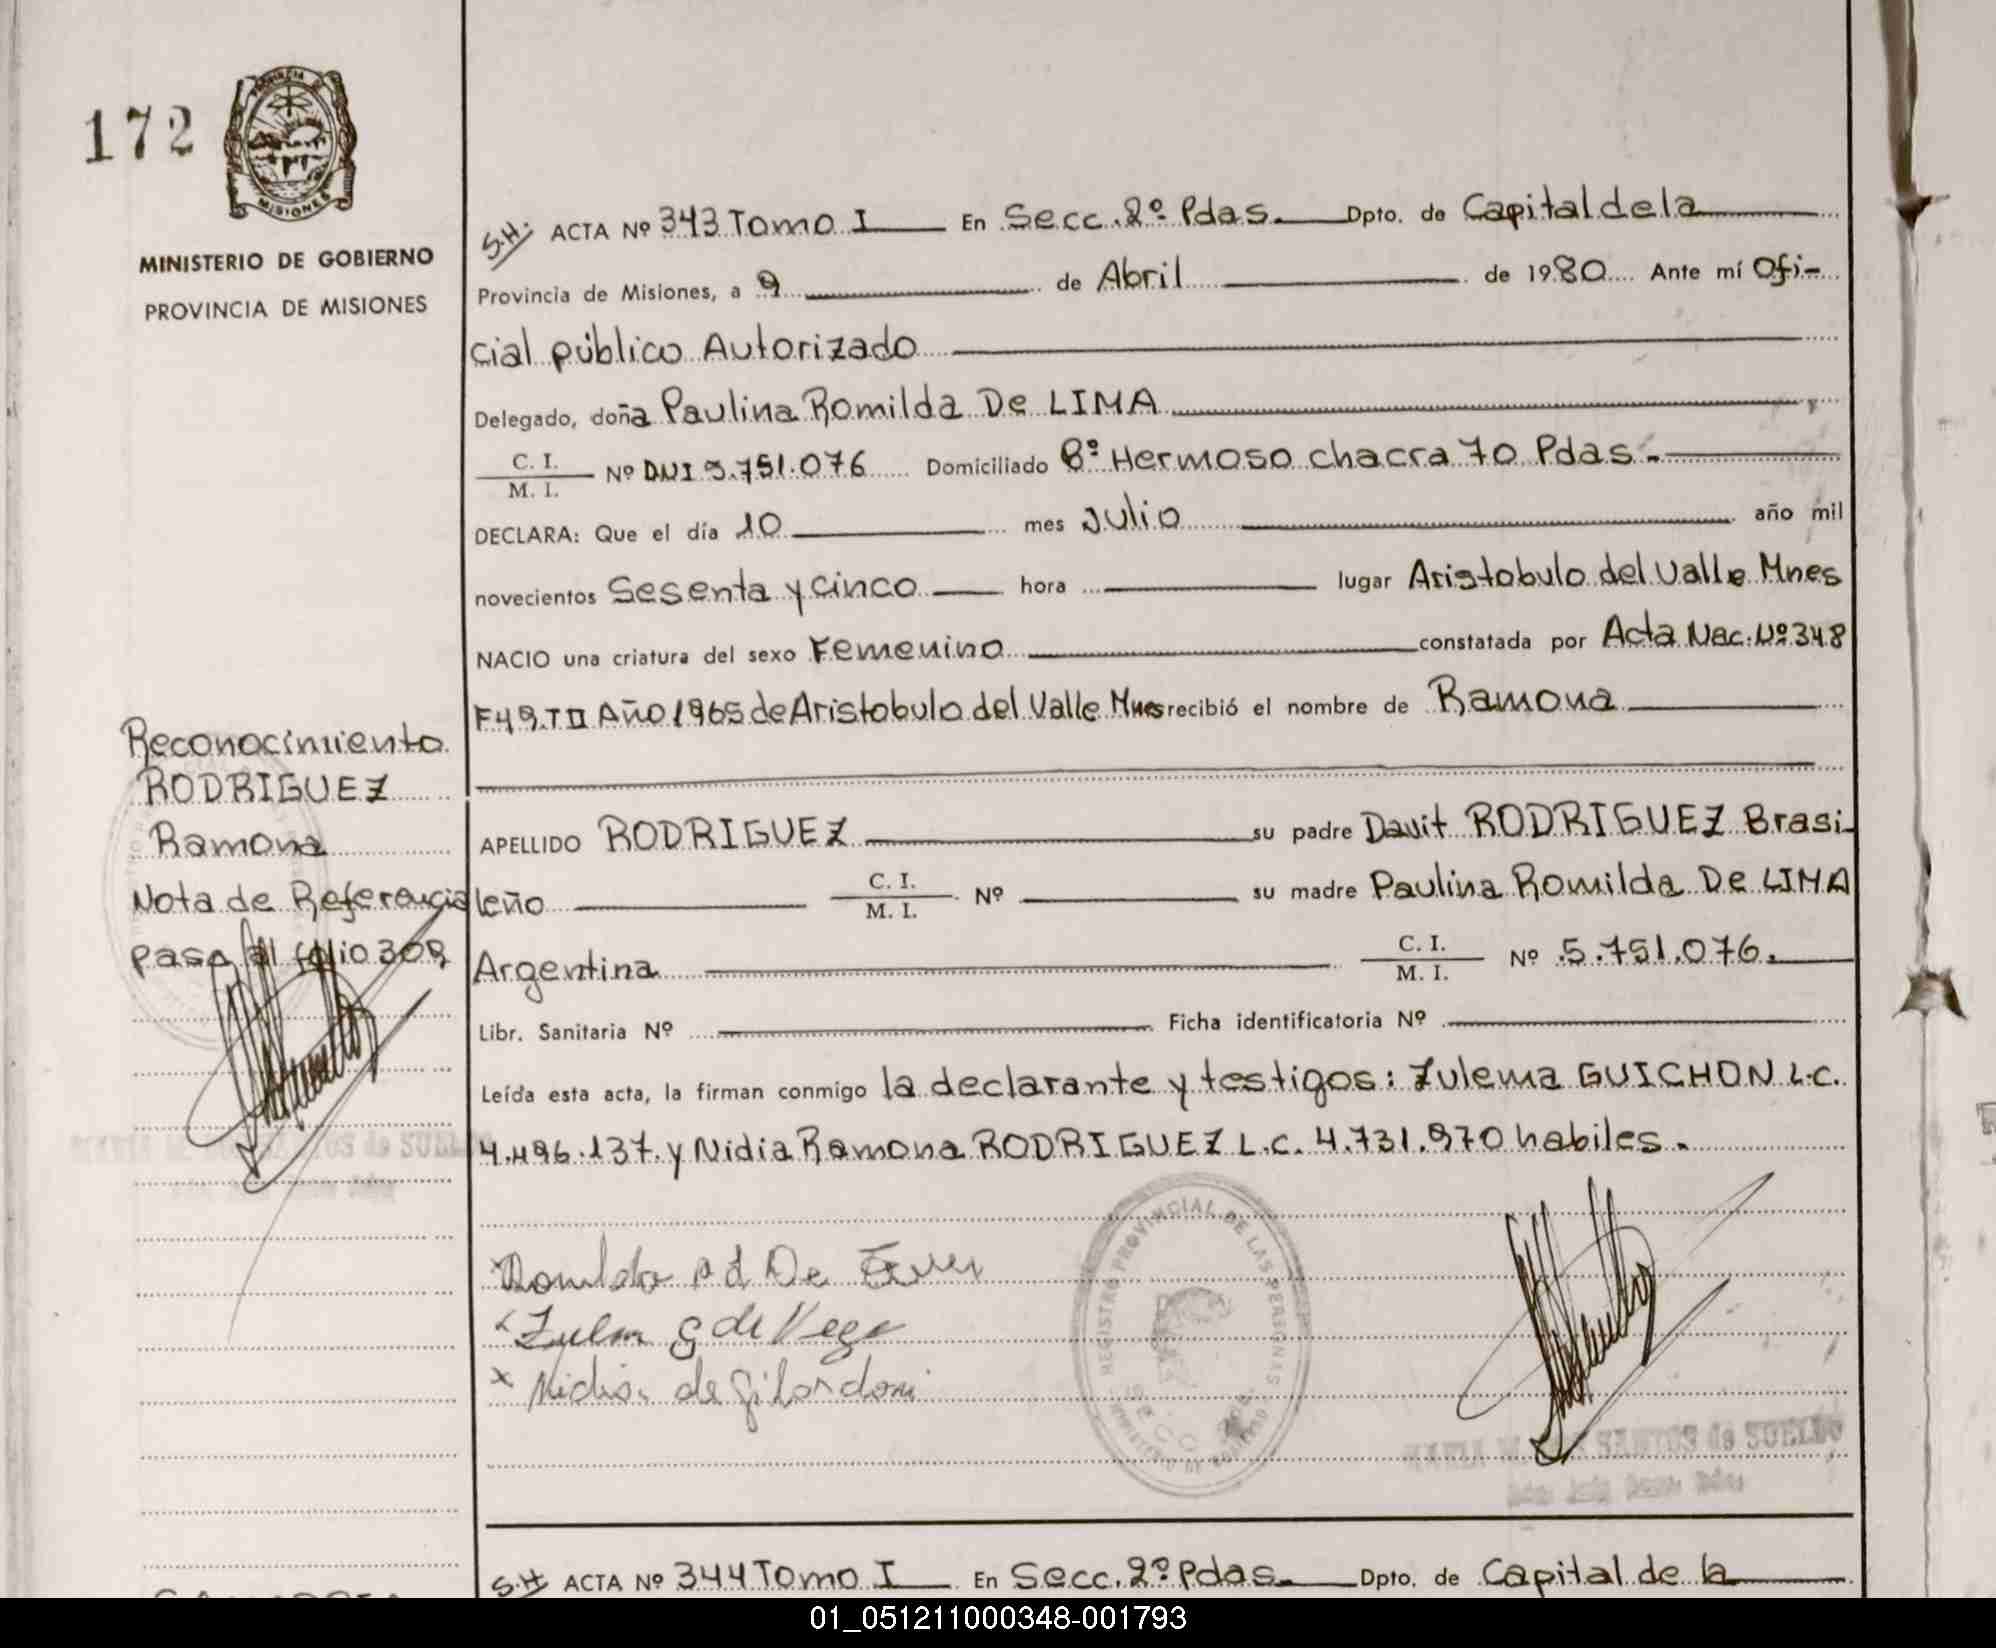 172
PROVINCIA DE
MISIONES
MINISTERIO DE GOBIERNO
PROVINCIA DE MISIONES
S.H: ACTA Nº 343 Tomo I En Secc. 2º Pdas. Dpto. de Capital de la
Provincia de Misiones, a 9 de Abril de 1980 Ante mí Ofi-
cial público Autorizado
Delegado, doña Paulina Romilda De LIMA
C. I.
M. I. Nº DNI 5.751.076 Domiciliado Bº Hermoso chacra 70 Pdas.-
DECLARA: Que el día 10 mes Julio año mil
novecientos Sesenta y cinco hora lugar Aristobulo del Valle Mnes
NACIO una criatura del sexo Femenino constatada por Acta Nac: Nº 348
F49 T II Año 1965 de Aristobulo del Valle Mnes recibió el nombre de Ramona
Reconocimiento
RODRIGUEZ
Ramona
Nota de Referencia
pasa al folio 309
APELLIDO RODRIGUEZ su padre Davit RODRIGUEZ Brasi-
leño C. I.
M. I. Nº su madre Paulina Romilda De LIMA
Argentina C. I.
M. I. Nº 5.751.076.
Libr. Sanitaria Nº Ficha identificatoria Nº
Leída esta acta, la firman conmigo la declarante y testigos: Zulema GUICHON L.C.
4.496.137. y Nidia Ramona RODRIGUEZ L.C. 4.731.970 habiles.
REGISTRO PROVINCIAL DE LAS PERSONAS
x Zulem G de Vega
x Nidia de Gilardoni
SANTOS de SUELDO
S.H ACTA Nº 344 Tomo I En Secc. 2º Pdas. Dpto. de Capital de la
01_051211000348-001793